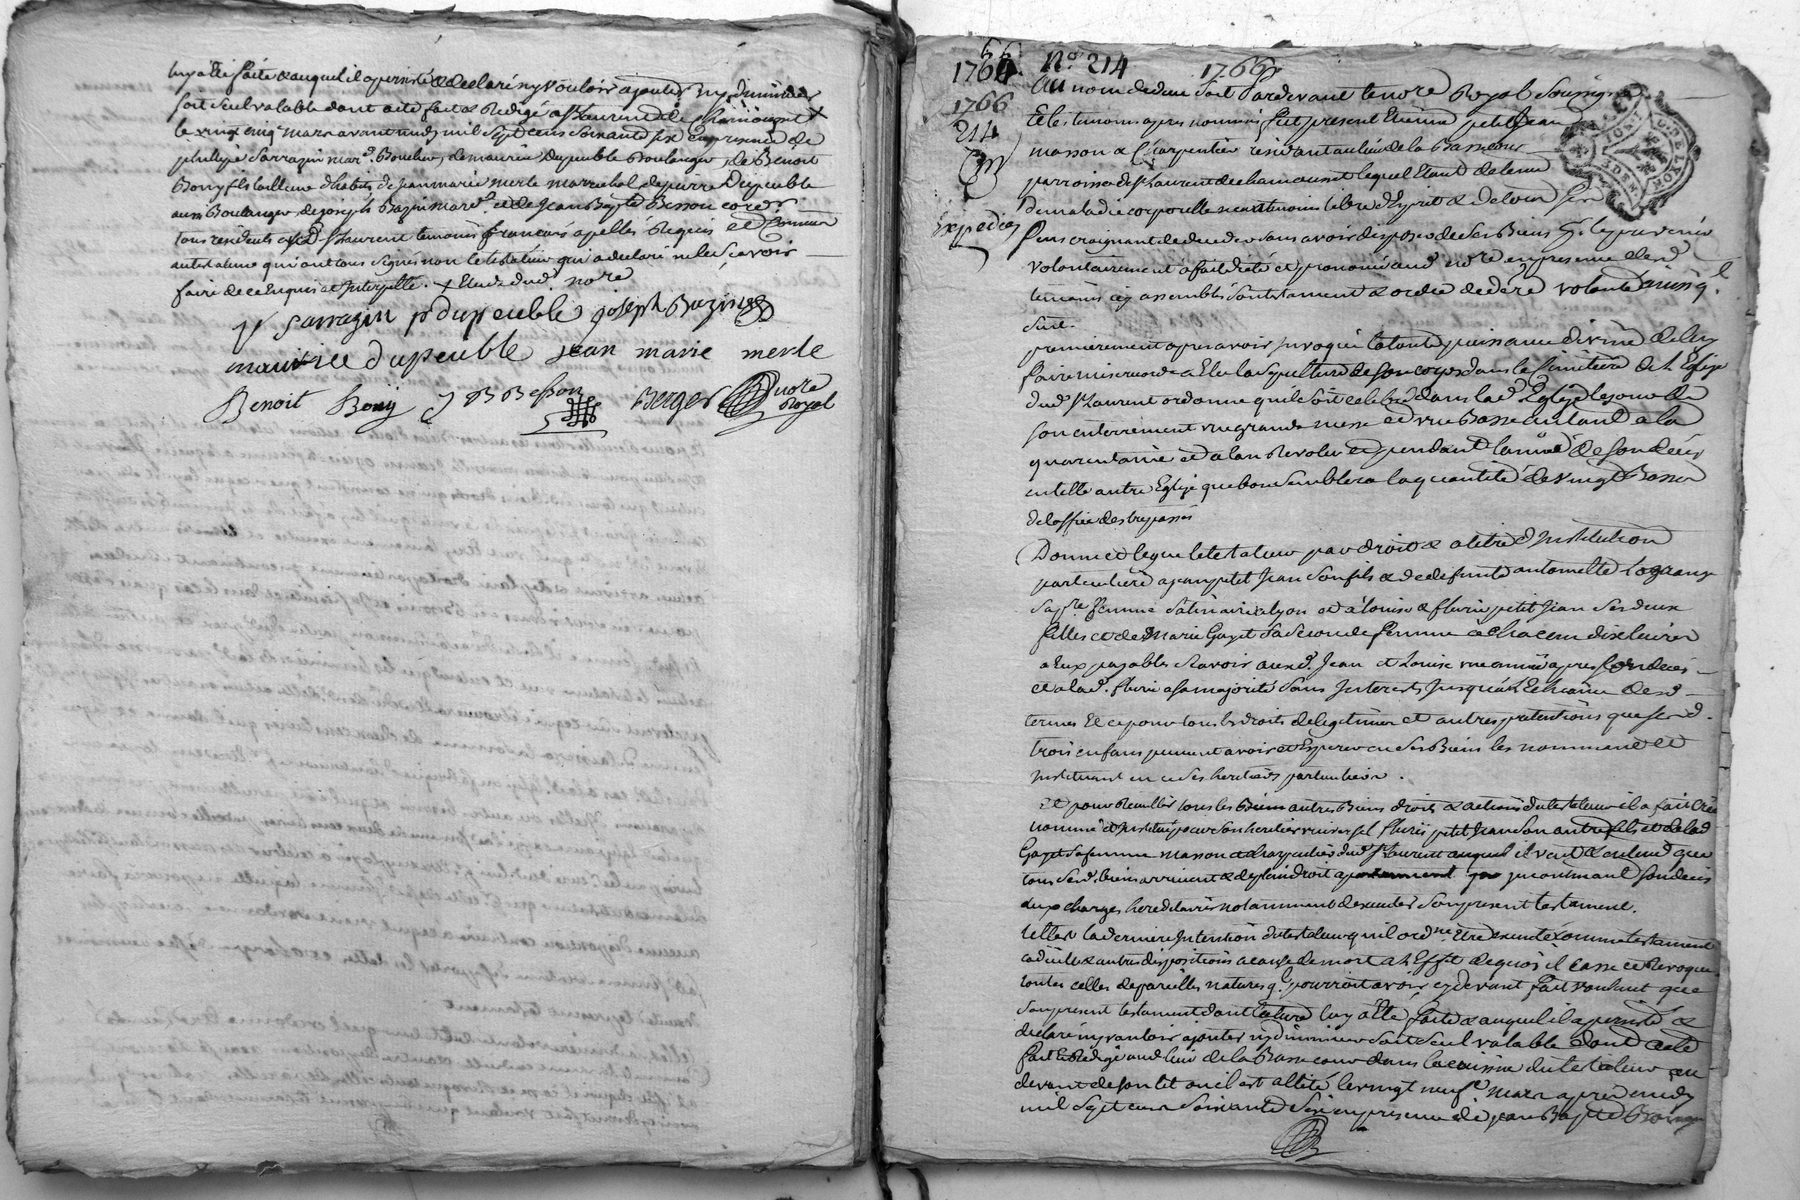 luy a été faite & auquel il a persisté & declaré ny vouloir ajouter ny diminuer
soit seul valable dont acte fait & redigé a St Laurent de Chamousset
le vingt cinq mars avant midy mil sept cens soixante six en presence de
philipe Sarrazin mard. Boucher, de maurice dupeuble Boulanger, de Benoit
Bony fils tailleur d'habits de jean marie merle marechal, de pierre Dupeuble
aussi Boulanger de joseph Bazin mard. et de Jean Bapte Besson cordr
tous residents aud. St Laurent temoins francais apellés Requis et
autestateur qui ont tous signés non le testateur qui a declaré ne le scavoir
faire de ce Enquis et Interpellé.
Sarrazin p dupeuble joseph Bazin
maurice dupeuble jean marie merle
Benoit Bony J B Besson Berger nore
Royal
66
1764 No 214 1766
1766
214
Expedié
Au nom de dieu soit Pardevant le nore Royal soussigné
et les temoins apres nommés fut present Etienne petit Jean
masson & Charpentier residant au lieu de la Bassecour
parroisse de St Laurent de chamousset lequel Etant detenu
De maladie corporelle neantmoins libre d'Esprit & de tous ses
sens craignant de deceder sans avoir disposé de ses Biens
volontairement a fait dicté et prononcé aud. nore en presence desd.
temoins icy assemblés son testament & ordre de dere volonté ainsi q.
suit.
premierement apres avoir invoqué la toute puissance divine de luy
faire misericorde a Elu la sepulture de son corps dans le Cimitiere de l'Eglise
dud. St Laurent ordonne qu'il soit celebré dans lad. Eglise le jour de
son enterrement une grande messe et une Basse autant a la
quarantaine et a l'an Revolu et pendant l'année de son deces
en telle autre Eglise que bon semblera la quantité de vingt Basses
de l'office des trepassés
Donne et legue le testateur par droit & a titre d'Institution
particuliere a jean petit Jean son fils & de defunte antoinette
sa pre femme satinaire a lyon et a louise & fleurie petit Jean ses deux
filles et de Marie Gayet sa seconde femme a chacun dix livres
a Eux payables scavoir auxd. Jean et Louise une année apres son deces
et a lad. fleurie a sa majorité sans Interets jusqu'a l'Echeance desd.
termes Et ce pour tous les droits de legitimes et autres pretentions que sesd.
trois enfans peuvent avoir et Esperer en ses Biens les nommant et
Instituant en ce ses heritiers particuliers.
Et pour Recueillir tous les Biens autres Biens droits & actions du testateur il a fait créé
nommé et Institué pour son heritier universel fleury petit Jean son autre fils et de lad
Gayet sa femme masson et charpentier dud. St Laurent auquel il veut & entend que
tous sesd. biens arrivent & de plein droit incontinant son deces
aux charges hereditaires notamment d'executer son present testament.
telle est la derniere Intention du testateur qu'il ordne Etre executé comme testament
codicile & autres dispositions a cause de mort a l'Effet de quoi il casse et Revoque
toutes celles de pareilles natures q. pourroit avoir cy devant fait voulant que
son present testament dont lecture luy a été faite & auquel il a persisté &
declaré ny vouloir ajouter ny diminuer soit seul valable dont acte
fait & Redigé aud. lieu de la Bassecour dans la cuisine du testateur au
devant de son lit ou il est alité le vingt neuf. mars apres midy
mil sept cens soixante six en presence de jean Bapte